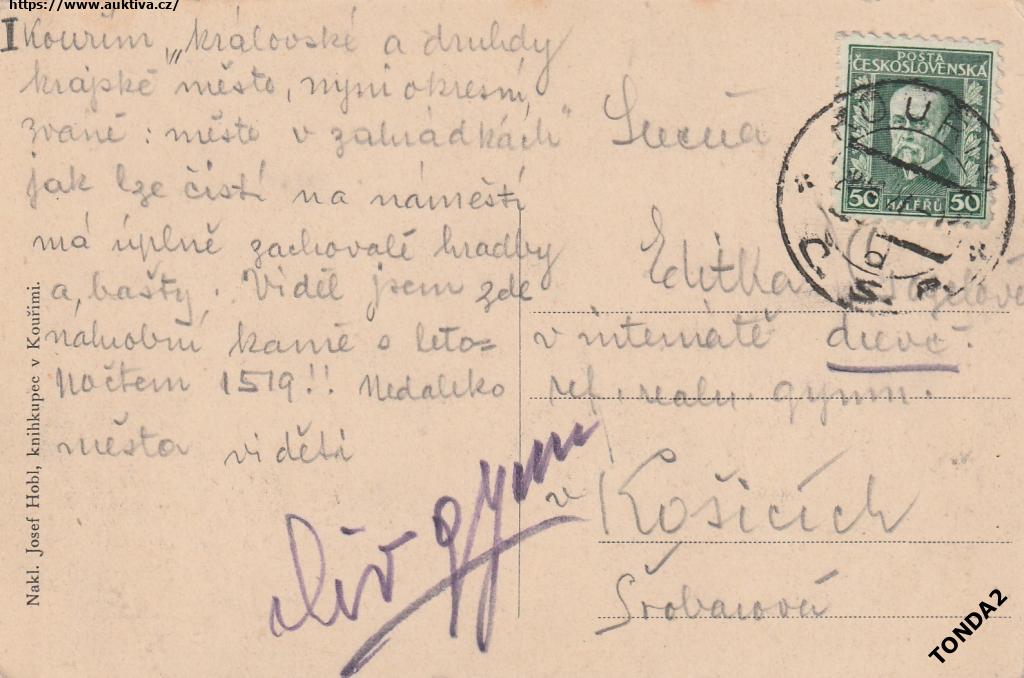 https://www.auktiva.cz/
I Kouřim „královské a druhdy
krajské město, nyní okresní,
zvané: město v zahrádkách"
jak lze čísti na náměstí
má úplně zachovalé hradby
a, bašty. Viděl jsem zde
náhrobní kamé s leto=
počtem 1519!! Nedaleko
města viděti
Slečna
Editka
v internátě dievč.
ref. realn. gymn.
v Košicích
Šrobárová
div gymn
POŠTA
ČESKOSLOVENSKÁ
50 HALÉŘŮ 50
Nakl. Josef Hobl, knihkupec v Kouřimi.
TONDA2